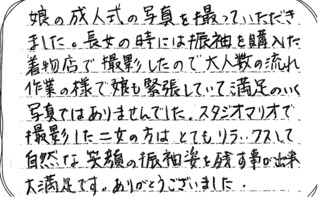 娘の成人式の写真を撮っていただき
ました。長女の時には振袖を購入た
着物店で撮影したので大人数の流れ
作業の様で娘も緊張していて満足のいく
写真ではありませんでした。スタジオマリオで
撮影した二女の方はとてもリラックスして
自然な笑顔の振袖姿を残す事が出来
大満足です。ありがとうございました.